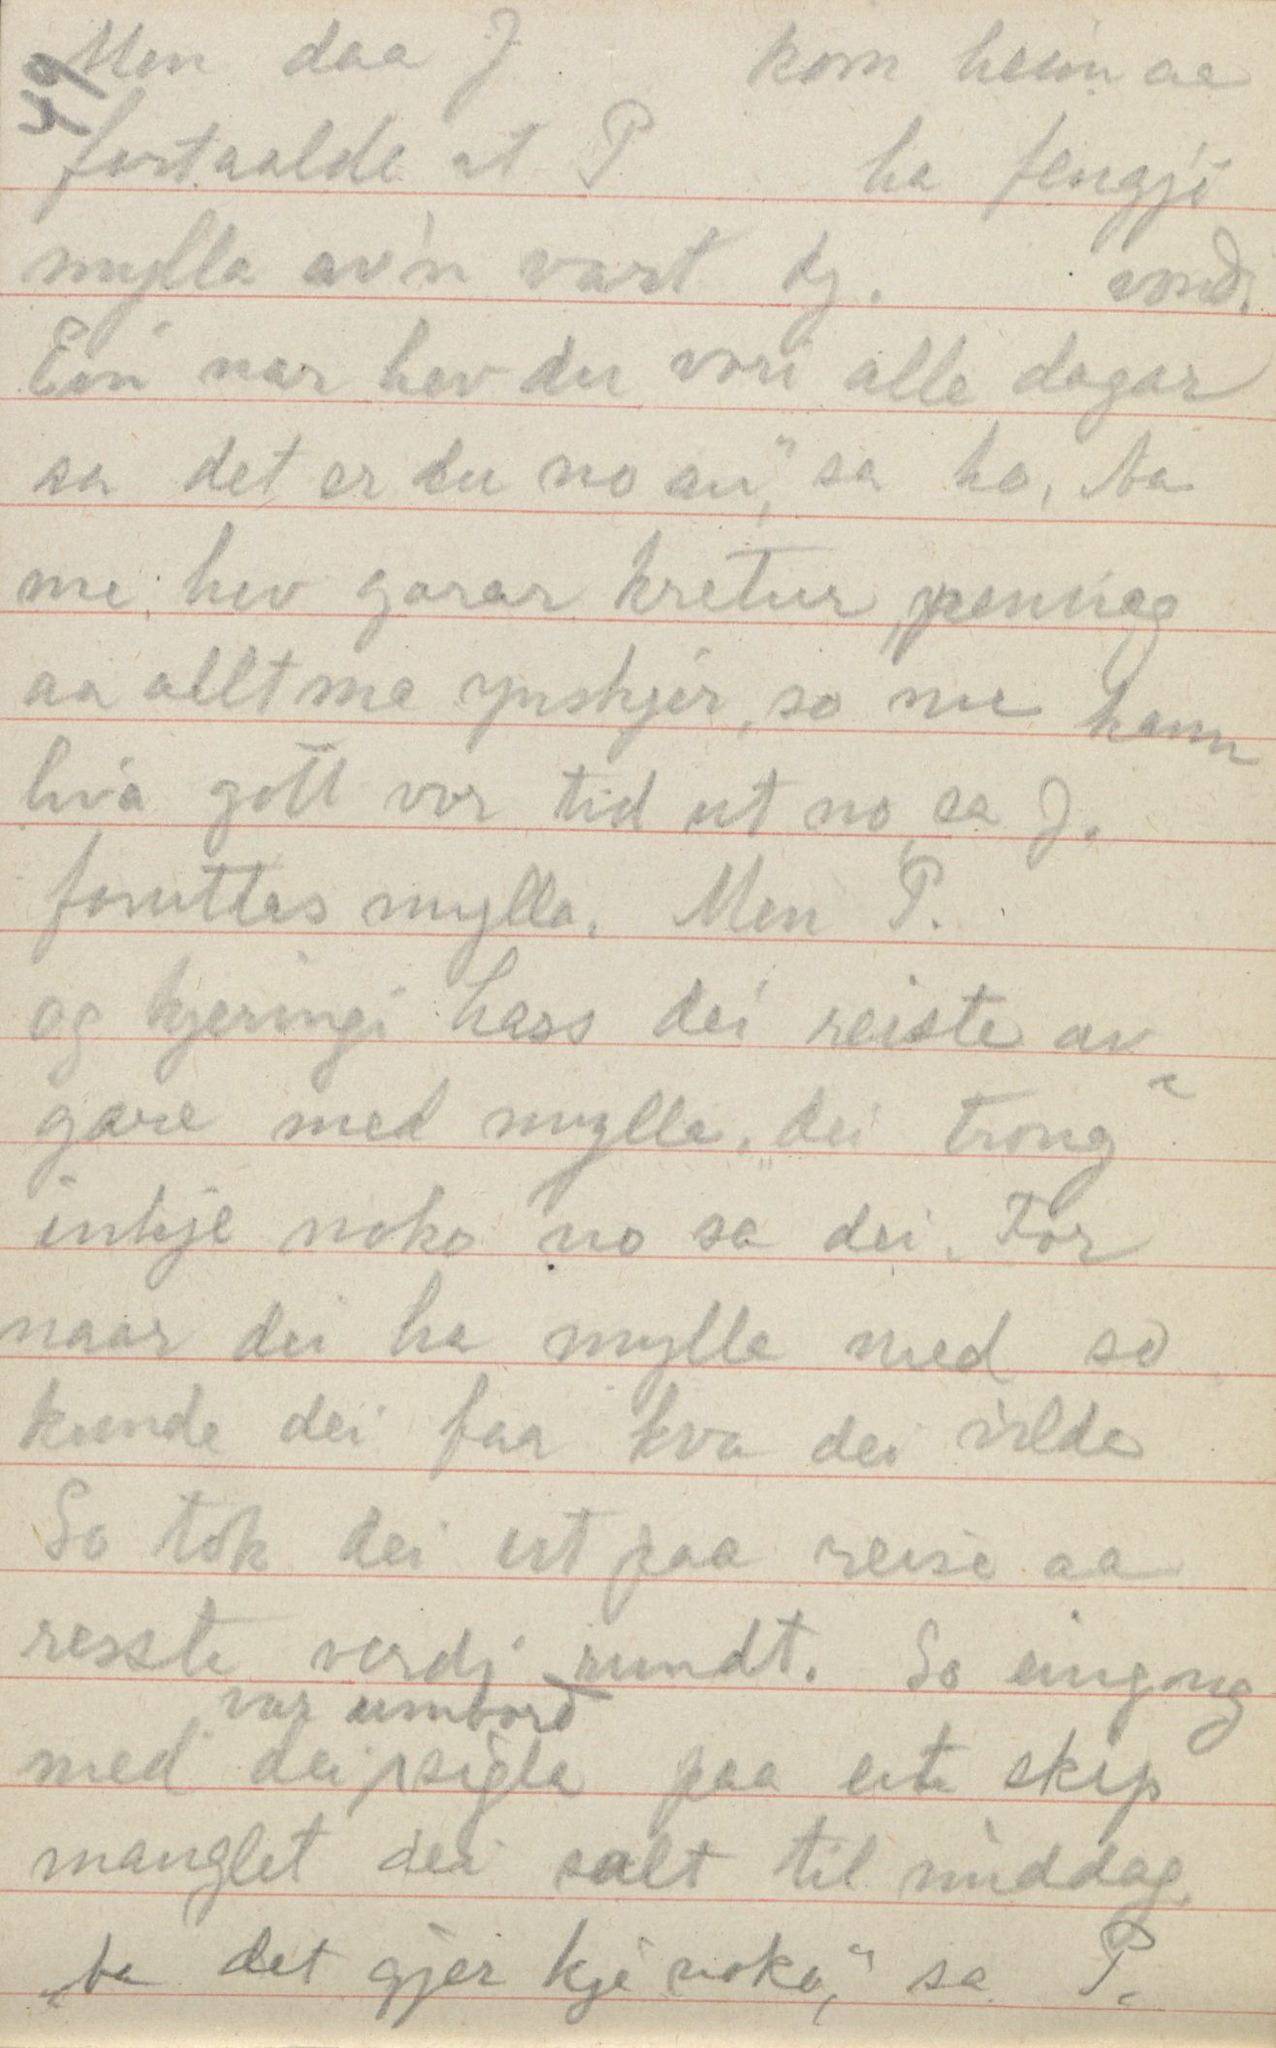 49
Men daa J kom heim aa
fortaalde at P ha fengji
mylla av'n vart kj. vond.
Ein nar hev du vori alle dagar
sa det er du no au," sa ho, "ba
me hev garar kretur pening
aa allt me ynskjer, so me kann
liva gott vor tid ut no, sa J.
foruttas mylla. Men P.
og kjeringi hass dei reiste av-
gare med mylla, "dei trong
inkje noko no sa dei. For
naar dei ha mylla med so
kunde dei faa kva dei vilde
So tok dei ut paa reise aa
resste verdi rundt. So eingong
var umbord
med dei sigla paa eit skip
manglet dei salt til middag
"ba det gjer kje noko," sa P.